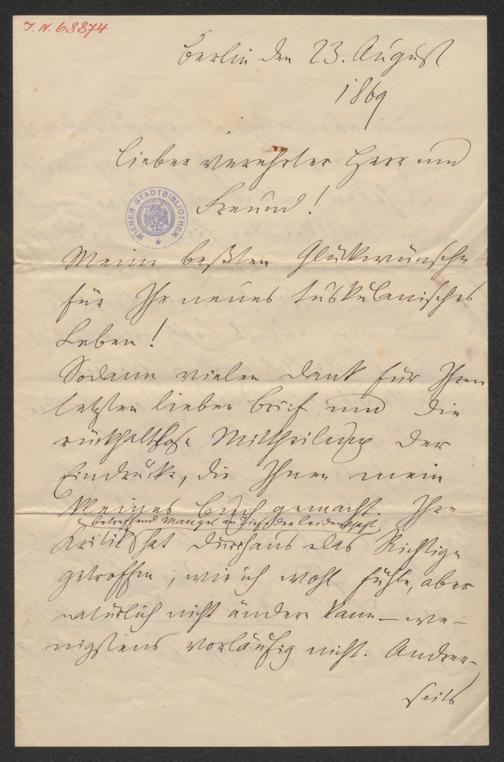 J. N. 68874
Berlin den 23. August
1869
Lieber verehrter Herr und
Freund!
WIENER STADTBIBLIOTHEK
Meine beßten Glükwünsche
für Ihr neues tuskulanisches
Leben!
Sodann vielen Dank für Ihren
letzten lieben Brief und die
rückhaltlose Mittheilung der
Eindrücke, die Ihnen mein
kleines Buch gemacht. Ihre
betreffend Mangel an Tiefe der Leidenschaft
Kritik hat durchaus das Richtige
getroffen, wie ich wohl fühle, aber
natürlich nicht ändern kann – we-
nigstens vorläufig nicht. Andrer-
seits